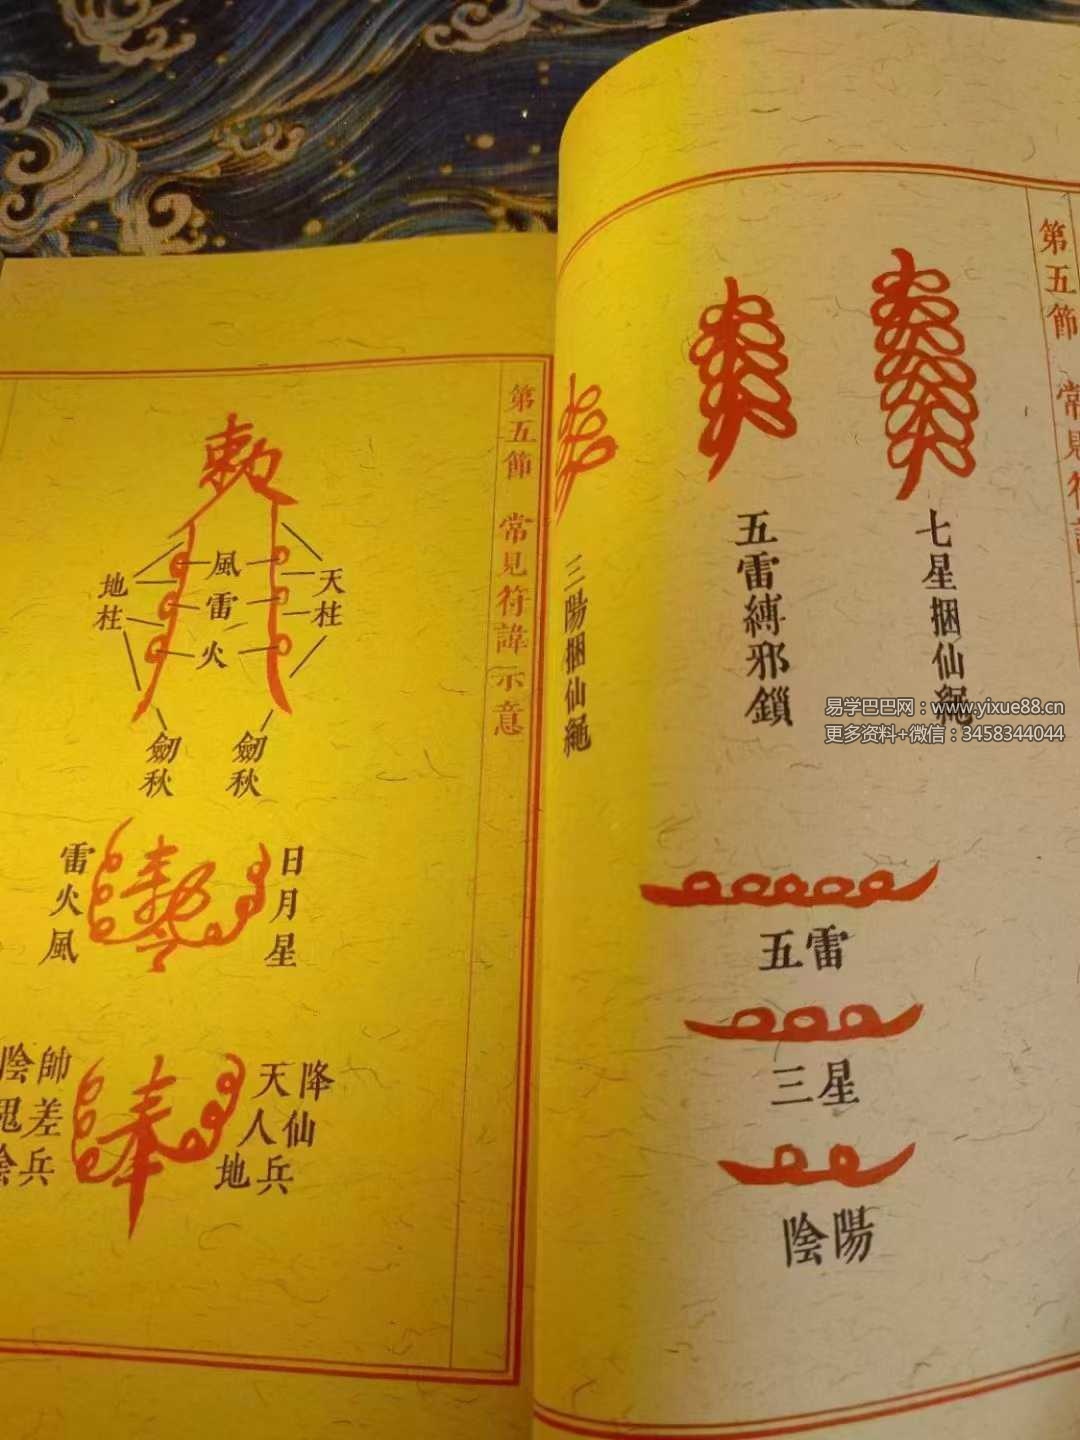 第五節 常見符諱
七星捆仙繩
五雷縛邪鎖
三陽捆仙繩
五雷
三星
陰陽
第五節 常見符諱示意
敕
風
雷
火
天柱
地柱
劒秋
劒秋
日月星
雷火風
奉
降仙兵
天人地
帥差兵
陰
易学巴巴网：www.yixue88.cn
更多资料+微信：3458344044